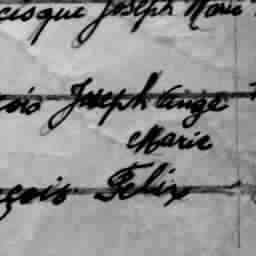 cisque Joseph Marie
çois Joseph Ange
Marie
çois Felix